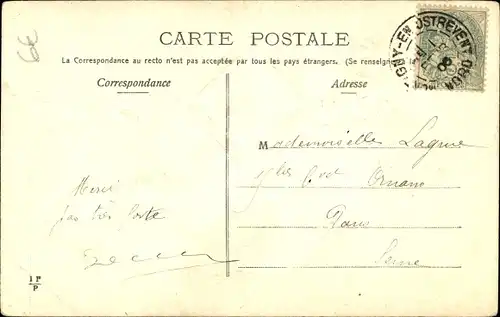 6€
CARTE POSTALE
La Correspondance au recto n'est pas acceptée par tous les pays étrangers. (Se renseigner à la
Correspondance
Adresse
IGNY-EN-OSTREVENT
NORD
Mademoiselle Lagrue
Bvd Ornano
Paris
Seine
Merci
pas très forte
1 P
P